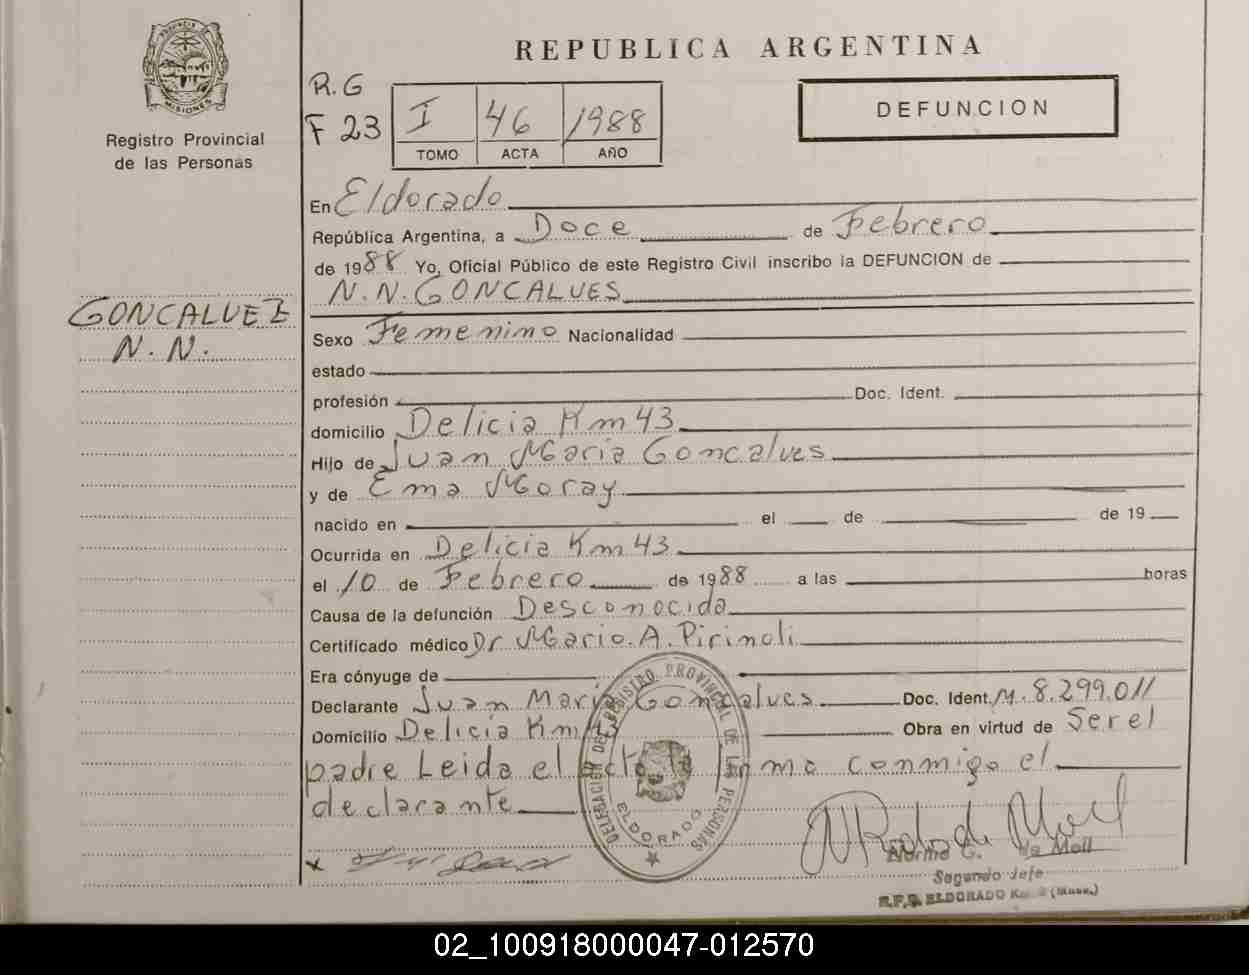 REPUBLICA ARGENTINA
PROVINCIA DE
MISIONES
Registro Provincial
de las Personas
R.G
F 23
I 46 1988
TOMO ACTA AÑO
DEFUNCION
En Eldorado
República Argentina, a Doce de Febrero
de 1988 Yo, Oficial Público de este Registro Civil inscribo la DEFUNCION de
N.N. GONCALVES
GONCALVEZ
N.N.
Sexo Femenino Nacionalidad
estado
profesión Doc. Ident.
domicilio Delicia Km 43
Hijo de Juan Maria Goncalves
y de Ema Moray
nacido en el de de 19
Ocurrida en Delicia Km 43
el 10 de Febrero de 1988 a las horas
Causa de la defunción Desconocida
Certificado médico Dr Mario. A. Pirinoli
Era cónyuge de
Declarante Juan Maria Goncalves Doc. Ident. M. 8.299.011
Domicilio Delicia Km Obra en virtud de Ser el
padre Leida el acta firma conmigo el
declarante
DELEGACION DEL REGISTRO PROVINCIAL DE LAS PERSONAS
ELDORADO
x
Norma G. de Moll
Segundo Jefe
ELDORADO
02_100918000047-012570